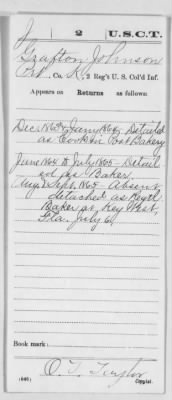 J 2 U.S.C.T.
Grafton Johnson
Pvt, Co. K, 2 Reg't U. S. Col'd Inf.
Appears on Returns as follows:
Dec. 1863 & Jany 1864, Detailed
as Cook in Post Bakery
June 1864 to July 1865 - Detail
ed as Baker.
Aug. & Sept. 1865 - Absent
detached as Regtl
Baker at Key West,
Fla. July 6,
Book mark:
O. T. Taylor
(646) Copyist.